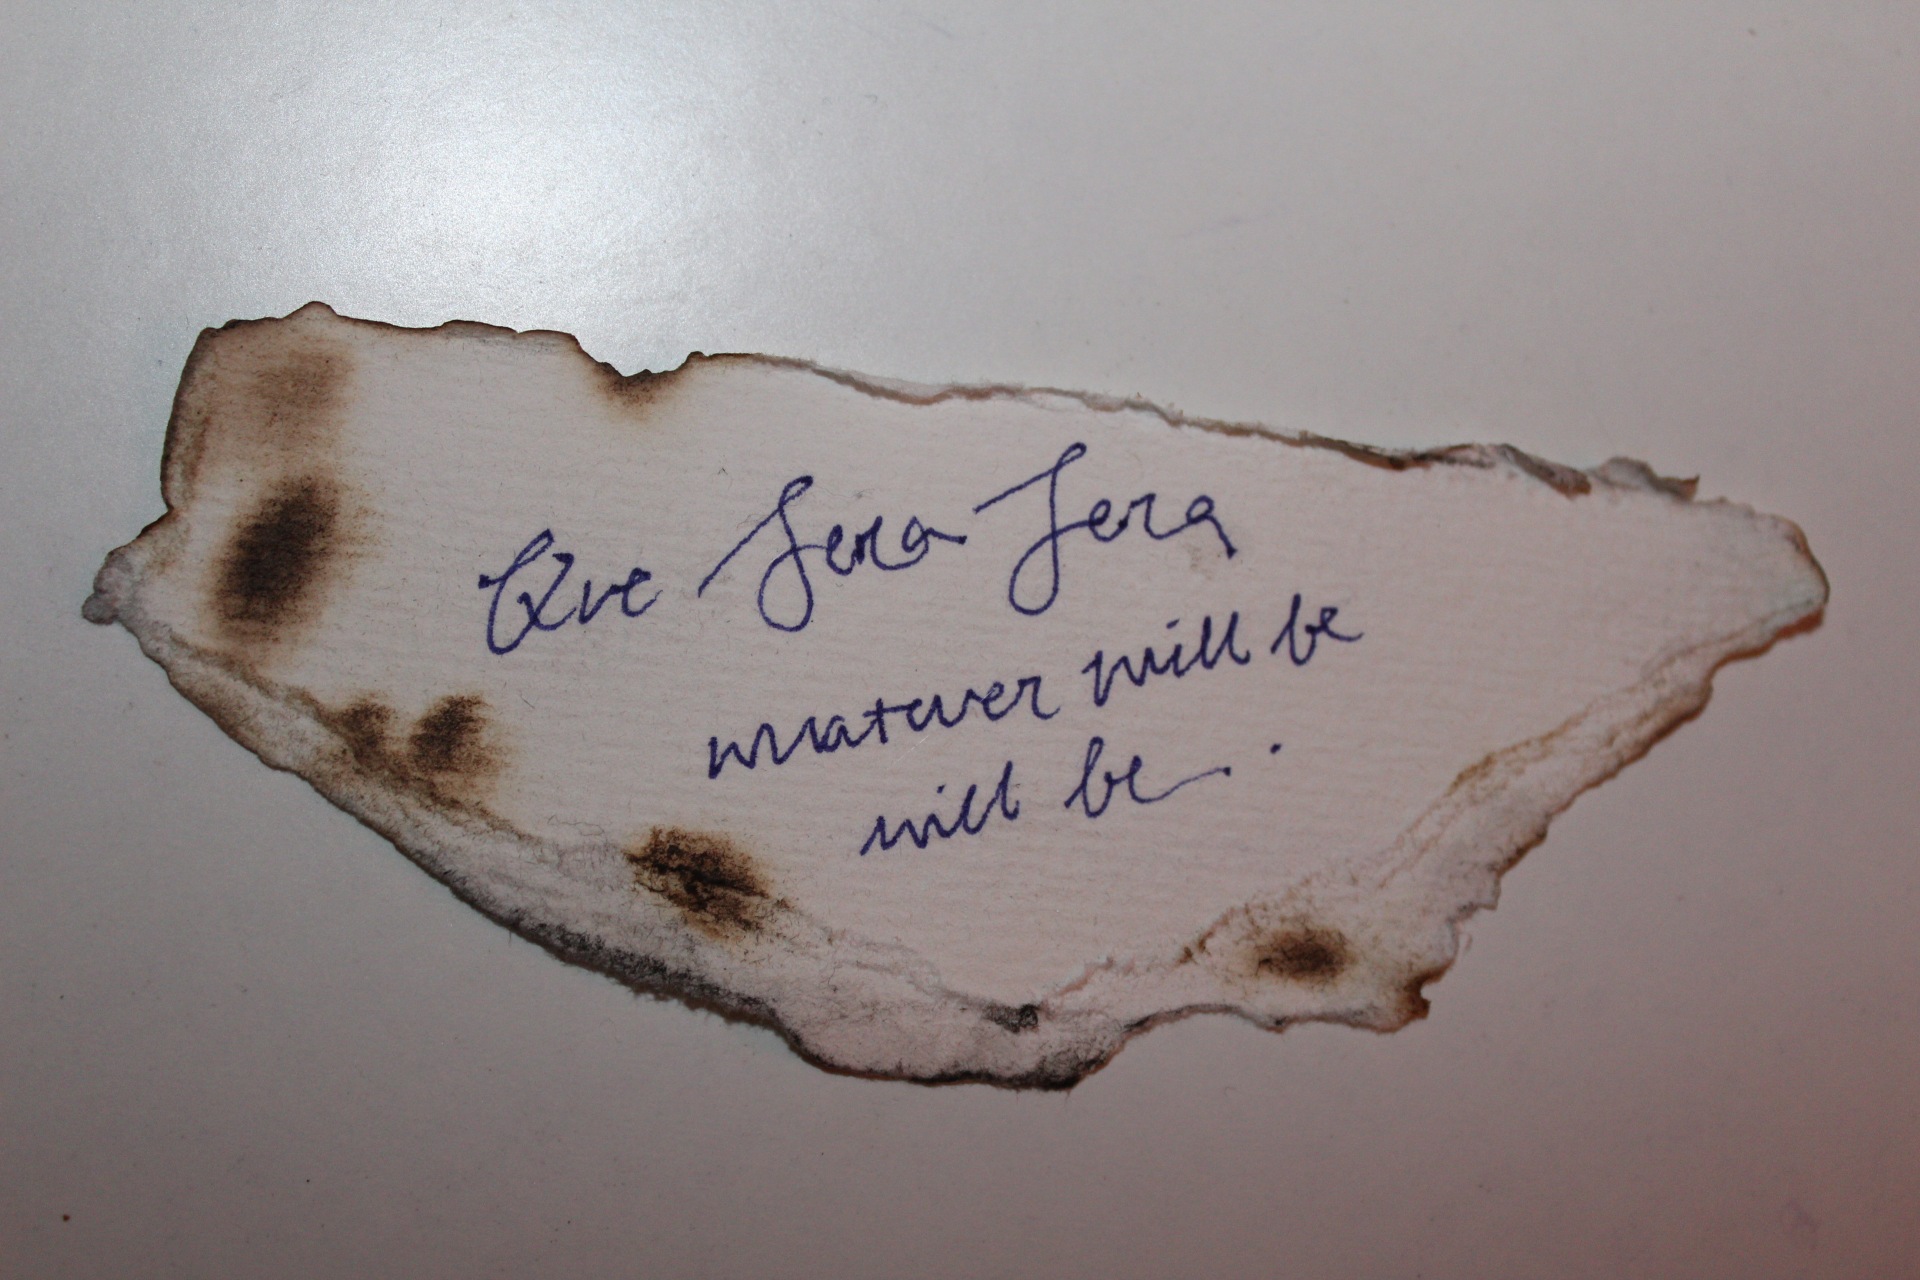 Que Sera Sera
whatever will be
will be..